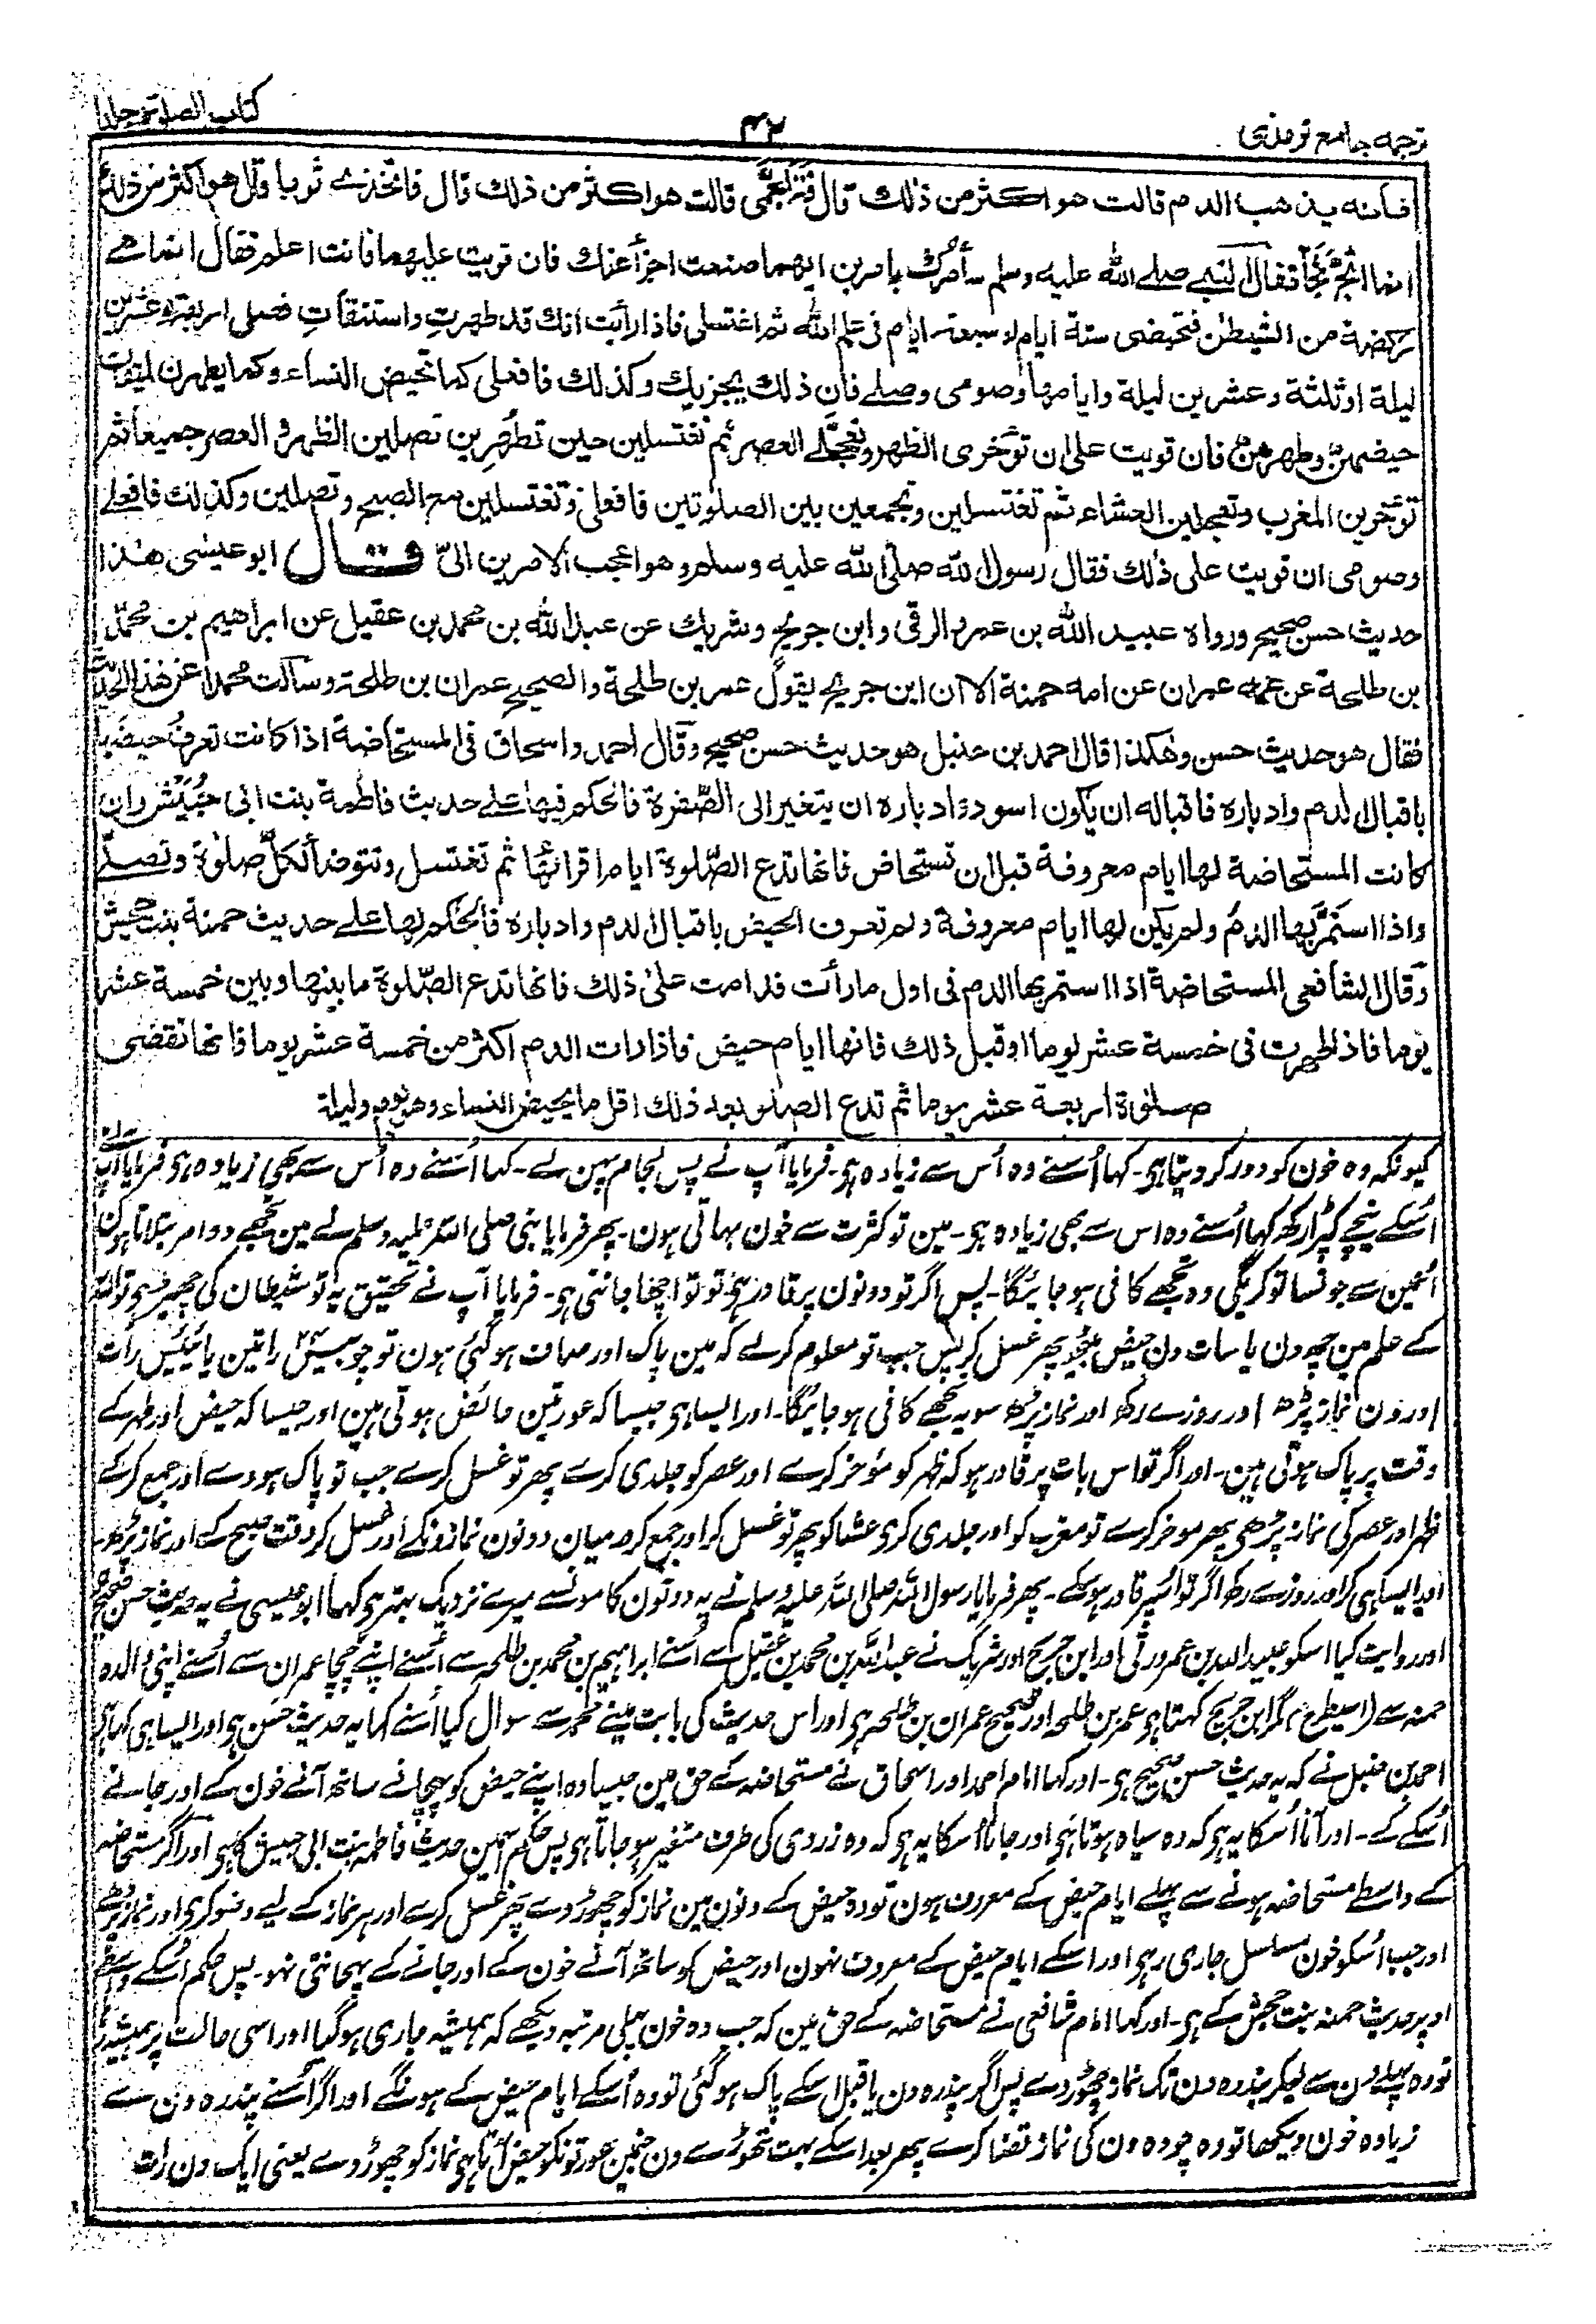 ترجمہ جامع ترمذی
۴۲
کتاب الصلاة جلد۱
فانہ یذھب الدم قالت ھو اکثر من ذلک قال فتلجمی قالت ھو اکثر من ذلک قال فاتخذی ثوبا قالت ھو اکثر من ذلک
انما اثج ثجا فقال النبی صلی اللہ علیہ وسلم سأمرک بامرین ایھما صنعت اجزأ عنک فان قویت علیھما فانت اعلم فقال انما ھی
رکضة من الشیطٰن فتحیضی ستة ایام او سبعة ایام فی علم اللہ ثم اغتسلی فاذا رأیت انک قد طھرت واستنقأت فصلی اربعة وعشرین
لیلة او ثلثة وعشرین لیلة وایامھا وصومی وصلی فان ذلک یجزیک وکذلک فافعلی کما تحیض النساء وکما یطھرن لمیقات
حیضھن وطھرھن فان قویت علی ان تؤخری الظھر وتعجلی العصر ثم تغتسلین حین تطھرین تصلین الظھر والعصر جمیعا ثم
تؤخرین المغرب وتعجلین العشاء ثم تغتسلین وتجمعین بین الصلوتین فافعلی وتغتسلین مع الصبح وتصلین وکذلک فافعلی
وصومی ان قویت علی ذلک فقال رسول اللہ صلی اللہ علیہ وسلم وھو اعجب الامرین الیّ قال ابو عیسی ھذا
حدیث حسن صحیح ورواہ عبید اللہ بن عمرو الرقی وابن جریج وشریک عن عبد اللہ بن محمد بن عقیل عن ابراھیم بن محمد
بن طلحة عن عمہ عمران عن امہ حمنة الا ان ابن جریج یقول عمر بن طلحة والصحیح عمران بن طلحة وسألت محمدا عن ھذا الحدیث
فقال ھو حدیث حسن وھکذا قال احمد بن حنبل ھو حدیث حسن صحیح وقال احمد واسحاق فی المستحاضة اذا کانت تعرف حیضھا
باقبال الدم وادبارہ فاقبالہ ان یکون اسود وادبارہ ان یتغیر الی الصفرة فالحکم فیھا علی حدیث فاطمة بنت ابی حبیش وان
کانت المستحاضة لھا ایام معروفة قبل ان تستحاض فانھا تدع الصلوة ایام اقرائھا ثم تغتسل وتتوضأ لکل صلوة وتصلی
واذا استمر بھا الدم ولم یکن لھا ایام معروفة ولم تعرف الحیض باقبال الدم وادبارہ فالحکم لھا علی حدیث حمنة بنت جحش
وقال الشافعی المستحاضة اذا استمر بھا الدم فی اول ما رأت فدامت علی ذلک فانھا تدع الصلوة ما بینھا وبین خمسة عشر
یوما فاذا طھرت فی خمسة عشر یوما او قبل ذلک فانھا ایام حیض فاذا رات الدم اکثر من خمسة عشر یوما فانھا تقضی
صلوة اربعة عشر یوما ثم تدع الصلوة بعد ذلک اقل ما یحیض النساء وھو یوم ولیلة
کیونکہ وہ خون کو دور کر دیتا ہی۔ کہا اُسنے وہ اُس سے زیادہ ہی۔ فرمایا آپ نے پس لجام پہن لے۔ کہا اُسنے وہ اُس سے بھی زیادہ ہی فرمایا آپ نے
اُسکے نیچے کپڑا رکھ کہا اُسنے وہ اس سے بھی زیادہ ہی۔ مین تو کثرت سے خون بہاتی ہون۔ پھر فرمایا نبی صلی اللہ علیہ وسلم نے مین تجھے دو امر بتلاتا ہون
اُنمین سے جونسا تو کریگی وہ تجھے کافی ہو جائیگا۔ پس اگر تو دونون پر قادر ہی تو تو اچھا جانتی ہی۔ فرمایا آپ نے تحقیق یہ تو شیطان کی چھیڑ ہی تو اللہ
کے علم مین چھ دن یا سات دن حیض پھر غسل کر پس جب تو معلوم کرلے کہ مین پاک اور صاف ہو گئی ہون تو چوبیس راتین یا تیئیس رات
اور دن نماز پڑھ اور روزے رکھ اور نماز پڑھ سو یہ تجھے کافی ہو جائیگا۔ اور ایسا ہی جیسا کہ عورتین حائض ہوتی ہین اور جیسا کہ حیض اور طہر کے
وقت پر پاک ہوتی ہین۔ اور اگر تو اس بات پر قادر ہو کہ ظہر کو مؤخر کرے اور عصر کو جلدی کرے پھر تو غسل کرے جب تو پاک ہووے اور جمع کر کے
ظہر اور عصر کی نماز پڑھی پھر موخر کرے تو مغرب کو اور جلدی کری عشا کو پھر تو غسل کر اور جمع کر درمیان دونون نمازونکے اور غسل کر وقت صبح کے اور نماز پڑھ
اور ایسا ہی کر اور روزے رکھ اگر تو اسپر قادر ہو سکے۔ پھر فرمایا رسول اللہ صلی اللہ علیہ وسلم نے یہ دونون کامونسے میرے نزدیک بہتر ہی کہا ابو عیسی نے یہ حدیث حسن صحیح ہی
اور روایت کیا اسکو عبید اللہ بن عمرو رقی اور ابن جریج اور شریک نے عبد اللہ بن محمد بن عقیل سے اُسنے ابراہیم بن محمد بن طلحہ سے اُسنے اپنے چچا عمران سے اُسنے اپنی والدہ
حمنہ سے (اسیطرح) مگر ابن جریج کہتا ہی عمر بن طلحہ اور صحیح عمران بن طلحہ ہی اور اس حدیث کی بابت مینے محمد سے سوال کیا اُسنے کہا یہ حدیث حسن ہی اور ایسا ہی کہا ہی
احمد بن حنبل نے کہ یہ حدیث حسن صحیح ہی۔ اور کہا امام احمد اور اسحاق نے مستحاضہ کے حق مین جیسا وہ اپنے حیض کو پہچانے ساتھ آنے خون کے اور جانے
اُسکے کے۔ اور آنا اُسکا یہ ہی کہ وہ سیاہ ہوتا ہی اور جانا اُسکا یہ ہی کہ وہ زردی کی طرف متغیر ہو جاتا ہی پس حکم اسمین حدیث فاطمہ بنت ابی حبیش کا ہی اور اگر مستحاضہ
کے واسطے مستحاضہ ہونے سے پہلے ایام حیض کے معروف ہون تو وہ حیض کے دنون مین نماز کو چھوڑ دے پھر غسل کرے اور ہر نماز کے لیے وضو کری اور نماز پڑھے
اور جب اُسکو خون مسلسل جاری رہی اور اسکے ایام حیض کے معروف نہون اور حیض کو ساتھ آنے خون کے اور جانے کے پہچانتی نہو۔ پس حکم اُسکے واسطے
اوپر حدیث حمنہ بنت جحش کے ہی۔ اور کہا امام شافعی نے مستحاضہ کے حق مین کہ جب وہ خون پہلی مرتبہ دیکھے کہ ہمیشہ جاری ہو گیا اور اسی حالت پر ہمیشہ
تو وہ پہلے دن سے لیکر پندرہ دن تک نماز چھوڑ دے پس اگر پندرہ دن یا قبل اسکے پاک ہو گئی تو وہ اُسکے ایام حیض کے ہونگے اور اگر اُسنے پندرہ دن سے
زیادہ خون دیکھا تو وہ چودہ دن کی نماز قضا کرے پھر بعد اسکے بہت تھوڑے دن جنمین عورتونکو حیض آتا ہی نماز کو چھوڑ دے یعنی ایک دن رات